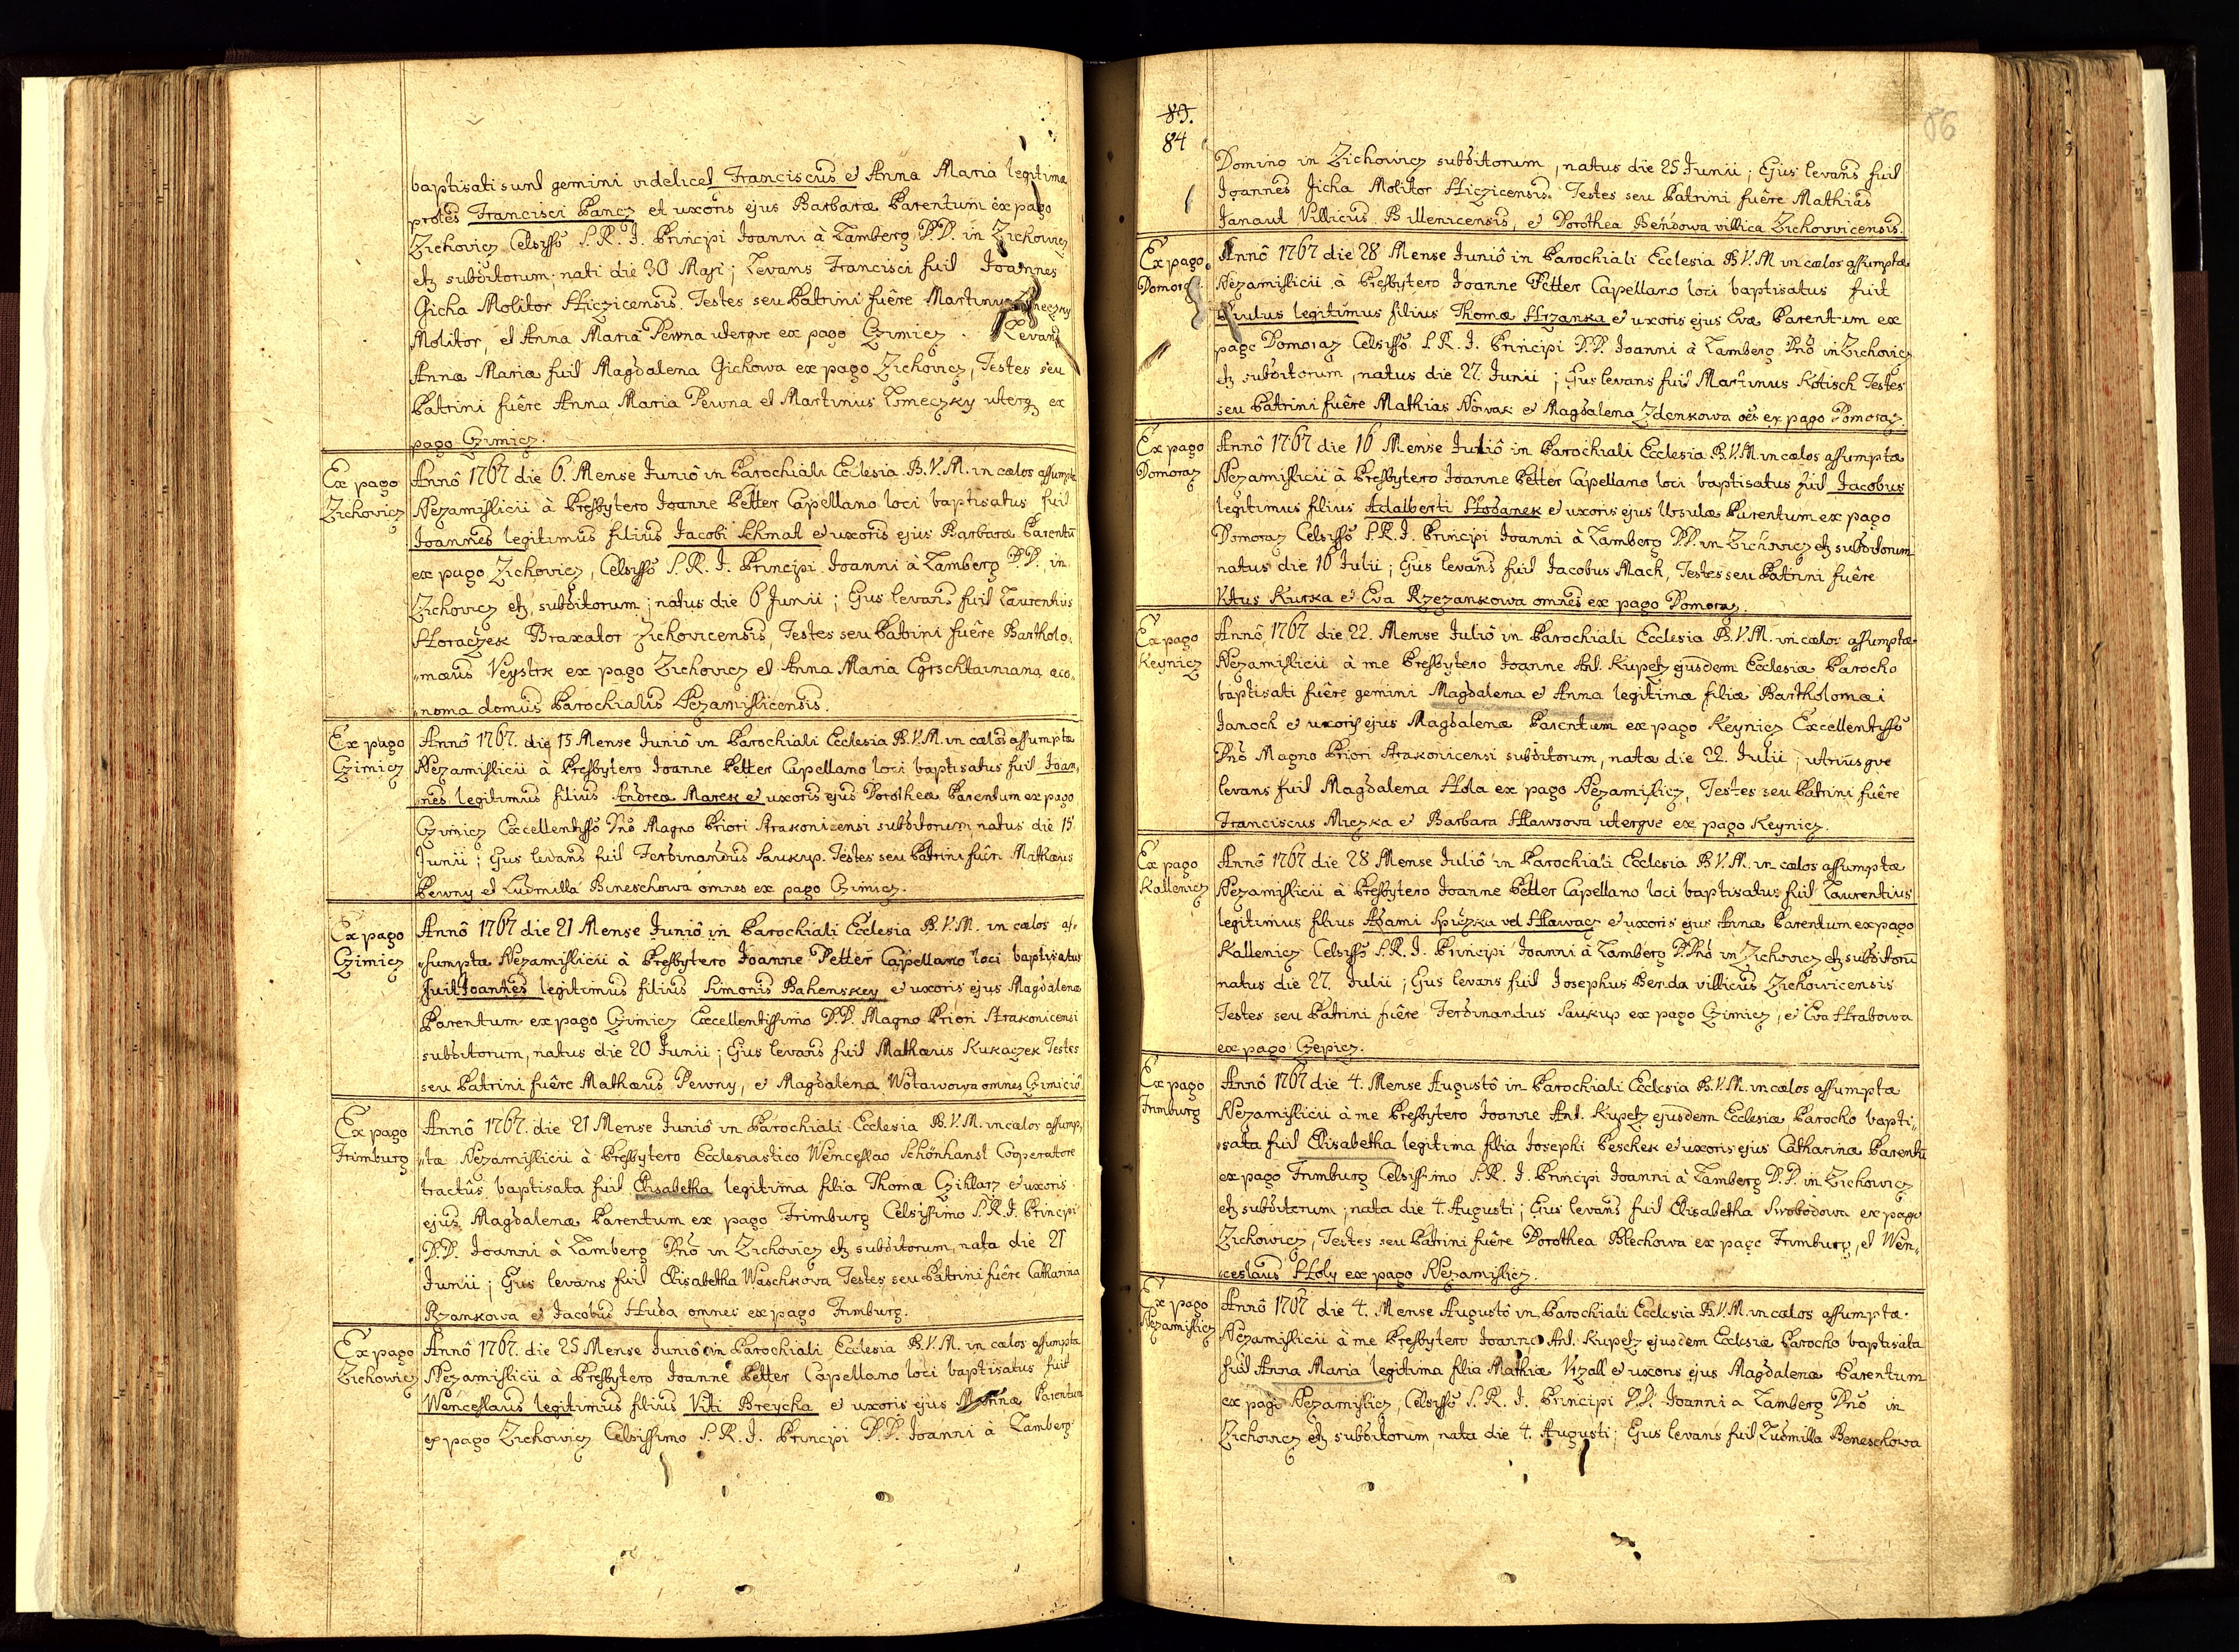 baptisati sunt gemini videlicet Franciscus et Anna Maria legitimæ
proles Francisci Pancz et uxoris ejus Barbaræ Parentum ex pago
Zichovicz Celsisso S. R. I. Principi Joanni à Lamberg D.D. in Zichowicz
etz subditorum; nati die 30 Maji; Levans Francisci fuit Joannes
Gicha Molitor Hiczicensis. Testes seu Patrini fuêre Martinus
Molitor, et Anna Maria Pewna uterque ex pago Czimicz. Levans
Annæ Mariæ fuit Magdalena Gichowa ex pago Zichovicz, Testes seu
Patrini fuêre Anna Maria Pewna et Martinus Lmeczky uterq ex
pago Czimicz.
Ex pago
Zichovicz
Annô 1767 die 6. Mense Juniô in Parochiali Ecclesia B.V.M. in cælos assumptæ
Nezamislicii à Presbytero Joanne Petter Capellano loci baptisatus fuit
Joannes legitimus filius Jacobi Schmat et uxoris ejus Barbaræ Parentū
ex pago Zichovicz, Celsisso S. R. I. Principi Joanni à Lamberg D.D. in
Zichovicz etz subditorum; natus die 6 Junii; Ejus levans fuit Laurentius
Horaczek Braxator Zichovicensis, Testes seu Patrini fuêre Bartholo-
mæus Veystrk ex pago Zichovicz et Anna Maria œco-
noma domus Parochialis Nezamislicensis.
Ex pago
Czimicz
Annô 1767. die 15 Mense Juniô in Parochiali Ecclesia B.V.M. in cælos assumptæ
Nezamislicii à Presbytero Joanne Petter Capellano loci baptisatus fuit Joan-
nes legitimus filius Andreæ Marek et uxoris ejus Dorotheæ Parentum ex pago
Czimicz Excellentisso Dnô Magno Priori Strakonicensi subditorum natus die 15
Junii; Ejus levans fuit Ferdinandus Saukup. Testes seu Patrini fuêre Mathæus
Pewny et Ludmilla Bineschowa omnes ex pago Czimicz.
Ex pago
Czimicz
Annô 1767 die 21 Mense Juniô in Parochiali Ecclesia B.V.M. in cælos as-
sumptæ Nezamislicii à Presbytero Joanne Petter Capellano loci baptisatus
fuit Joannes legitimus filius Simonis Bahenskey et uxoris ejus Magdalenæ
Parentum ex pago Czimicz Excellentissimo D.D. Magno Priori Strakonicensi
subditorum, natus die 20 Junii; Ejus levans fuit Mathæus Kukaczek Testes
seu Patrini fuêre Mathæus Pewny, et Magdalena Wotawowa omnes Czimiciō
Ex pago
Frimburg
Annô 1767. die 21 Mense Juniô in Parochiali Ecclesia B.V.M. in cælos assump-
tæ Nezamislicii à Presbytero Ecclesiastico Wenceslao Schönhansl Cooperatore
tractûs baptisata fuit Elisabetha legitima filia Thomæ Czihlarz et uxoris
ejus Magdalenæ Parentum ex pago Frimburg Celsissimo S.R.I. Principi
D.D. Joanni à Lamberg Dnô in Zichovicz etz subditorum, nata die 21
Junii; Ejus levans fuit Elisabetha Waschkova Testes seu Patrini fuêre Catharina
Rzankowa et Jacobus Huda omnes ex pago Frimburg.
Ex pago
Zichowicz
Annô 1767. die 25 Mense Juniô in Parochiali Ecclesia B.V.M. in cælos assumptæ
Nezamislicii à Presbytero Joanne Petter Capellano loci baptisatus fuit
Wenceslaus legitimus filius Viti Breycha et uxoris ejus Annæ Parentum
ex pago Zichovicz Celsissimo S. R. I. Principi D.D. Joanni à Lamberg
84
86
Domino in Zichovicz subditorum, natus die 25 Junii; Ejus levans fuit
Joannes Jicha Molitor Hiczicensis. Testes seu Patrini fuêre Mathias
Janaut Villicus Billenicensis, et Dorothea Bendowa villica Zichovvicensis.
Ex pago
Domoraz
Annô 1767 die 28 Mense Juniô in Parochiali Ecclesia B.V.M in cælos assumptæ
Nezamislicii à Presbytero Joanne Petter Capellano loci baptisatus fuit
legitimus filius Thomæ Hrzanka et uxoris ejus Evæ Parentum ex
pago Domoraz Celsisso S.R.I. Principi D.D. Joanni à Lamberg Dnô in Zichovicz
etz subditorum, natus die 27. Junii; Ejus levans fuit Martinus Kotisch Testes
seu Patrini fuêre Mathias Novak et Magdalena Zdenkowa oēs ex pago Domoraz.
Ex pago
Domoraz
Annô 1767 die 16 Mense Juliô in Parochiali Ecclesia B.V.M in cælos assumptæ
Nezamislicii à Presbytero Joanne Petter Capellano loci baptisatus fuit Jacobus
legitimus filius Adalberti Hodanek et uxoris ejus Ursulæ Parentum ex pago
Domoraz Celsisso S.R.I. Principi Joanni à Lamberg D.D. in Zichovicz etz subditorum
natus die 16 Julii; Ejus levans fuit Jacobus Mach, Testes seu Patrini fuêre
Vitus Kurka et Eva Rzezankowa omnes ex pago Domoraz.
Ex pago
Keynicz
Annô 1767 die 22. Mense Juliô in Parochiali Ecclesia B.V.M. in cælos assumptæ
Nezamislicii à me Presbytero Joanne Ant. Kupetz ejusdem Ecclesiæ Parocho
baptisati fuêre gemini Magdalena et Anna legitimæ filiæ Bartholomæi
Janoch et uxoris ejus Magdalenæ Parentum ex pago Keynicz Excellentisso
Dnô Magno Priori Strakonicensi subditorum, natæ die 22. Julii; utriusque
levans fuit Magdalena Hola ex pago Nezamislicz, Testes seu Patrini fuêre
Franciscus Miczka et Barbara Hawsova uterque ex pago Keynicz.
Ex pago
Kallenicz
Annô 1767 die 28 Mense Juliô in Parochiali Ecclesia B.V.M. in cælos assumptæ
Nezamislicii à Presbytero Joanne Petter Capellano loci baptisatus fuit Laurentius
legitimus filius Adami Spiczka vel Hlawacz et uxoris ejus Annæ Parentum ex pago
Kallenicz Celsisso S.R.I. Principi Joanni à Lamberg D.Dnô in Zichovicz etz subditorū
natus die 27. Julii; Ejus levans fuit Josephus Benda villicus Zichovicensis
Testes seu Patrini fuêre Ferdinandus Saukup ex pago Czimicz, et Eva Hrabowa
ex pago Czepicz.
Ex pago
Frimburg
Annô 1767 die 4. Mense Augustô in Parochiali Ecclesia B.V.M. in cælos assumptæ
Nezamislicii à me Presbytero Joanne Ant. Kupetz ejusdem Ecclesiæ Parocho bapti-
sata fuit Elisabetha legitima filia Josephi Peschek et uxoris ejus Catharinæ Parentū
ex pago Frimburg Celsissimo S.R.I. Principi Joanni à Lamberg D.D. in Zichovicz
etz subditorum; nata die 4. Augusti; Ejus levans fuit Elisabetha Swobodowa ex pago
Zichowicz, Testes seu Patrini fuêre Dorothea Blechowa ex pago Frimburg, et Wen-
ceslaus Holy ex pago Nezamislicz.
Ex pago
Nezamislicz
Annô 1767 die 4. Mense Augustô in Parochiali Ecclesia B.V.M. in cælos assumptæ
Nezamislicii à me Presbytero Joanne Ant. Kupetz ejusdem Ecclesiæ Parocho baptisata
fuit Anna Maria legitima filia Mathiæ Vrzall et uxoris ejus Magdalenæ Parentum
ex pago Nezamislicz, Celsisso S. R. I. Principi D.D. Joanni a Lamberg Dnô in
Zichovicz etz subditorum, nata die 4. Augusti; Ejus levans fuit Ludmilla Beneschowa